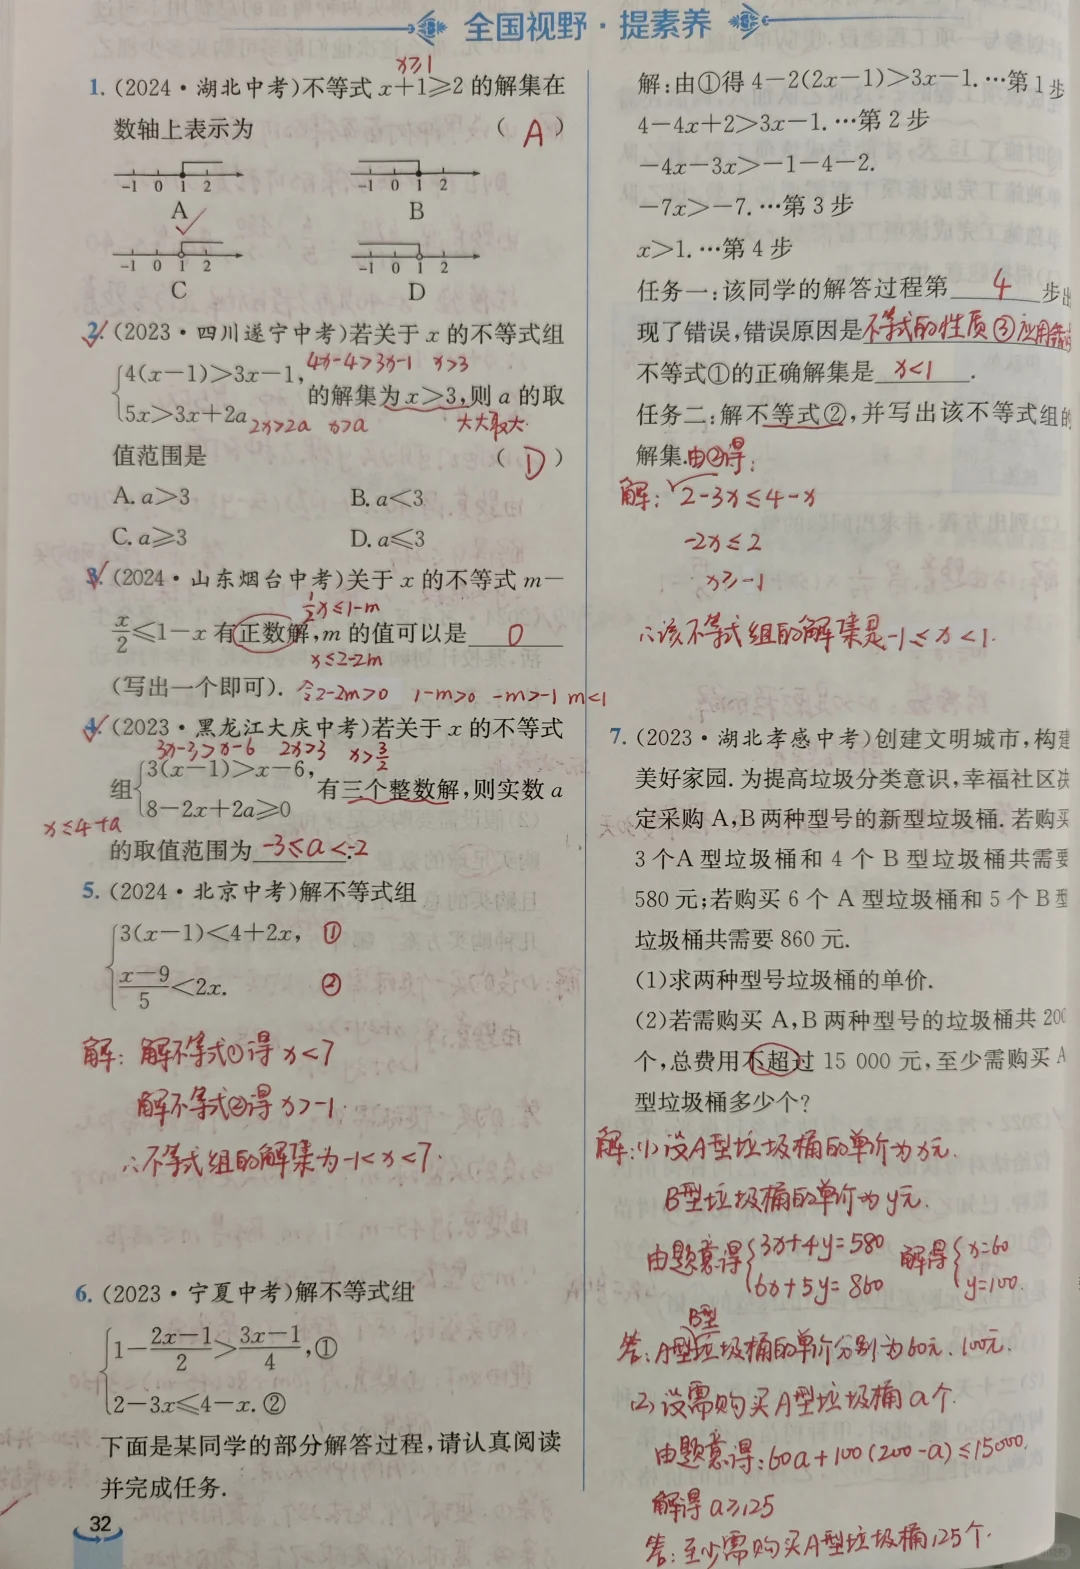 全国视野·提素养
x≥1
1. (2024·湖北中考)不等式 x+1≥2 的解集在
数轴上表示为 ( A )
-1 0 1 2
A
-1 0 1 2
B
-1 0 1 2
C
-1 0 1 2
D
2. (2023·四川遂宁中考)若关于 x 的不等式组
4x-4>3x-1 x>3
{4(x-1)>3x-1,
5x>3x+2a 的解集为 x>3,则 a 的取
2x>2a x>a 大大取大
值范围是 ( D )
A. a>3 B. a<3
C. a≥3 D. a≤3
3. (2024·山东烟台中考)关于 x 的不等式 m-
½x≤1-m
x/2≤1-x 有正数解,m 的值可以是 0
x≤2-2m
(写出一个即可). 令2-2m>0 1-m>0 -m>-1 m<1
4. (2023·黑龙江大庆中考)若关于 x 的不等式
3x-3>x-6 2x>3 x>3/2
组{3(x-1)>x-6,
8-2x+2a≥0 有三个整数解,则实数 a
x≤4+a
的取值范围为 -3≤a<-2.
5. (2024·北京中考)解不等式组
{3(x-1)<4+2x, ①
(x-9)/5<2x. ②
解: 解不等式①得 x<7
解不等式②得 x>-1.
∴不等式组的解集为-1<x<7.
6. (2023·宁夏中考)解不等式组
{1-(2x-1)/2>(3x-1)/4,①
2-3x≤4-x.②
下面是某同学的部分解答过程,请认真阅读
并完成任务.
32
解:由①得 4-2(2x-1)>3x-1.…第 1 步
4-4x+2>3x-1.…第 2 步
-4x-3x>-1-4-2.
-7x>-7.…第 3 步
x>1.…第 4 步
任务一:该同学的解答过程第 4 步出
现了错误,错误原因是不等式的性质③应用错误
不等式①的正确解集是 x<1 .
任务二:解不等式②,并写出该不等式组的
解集.由②得:
解: 2-3x≤4-x
-2x≤2
x≥-1
∴该不等式组的解集是-1≤x<1.
7. (2023·湖北孝感中考)创建文明城市,构建
美好家园.为提高垃圾分类意识,幸福社区决
定采购 A,B 两种型号的新型垃圾桶.若购买
3 个 A 型垃圾桶和 4 个 B 型垃圾桶共需要
580 元;若购买 6 个 A 型垃圾桶和 5 个 B 型
垃圾桶共需要 860 元.
(1)求两种型号垃圾桶的单价.
(2)若需购买 A,B 两种型号的垃圾桶共 200
个,总费用不超过 15 000 元,至少需购买 A
型垃圾桶多少个?
解:(1)设A型垃圾桶的单价为x元.
B型垃圾桶的单价为y元.
由题意得{3x+4y=580 解得{x=60
6x+5y=860 y=100.
B型
答:A型垃圾桶的单价分别为60元、100元.
(2)设需购买A型垃圾桶a个.
由题意得:60a+100(200-a)≤15000.
解得 a≥125
答:至少需购买A型垃圾桶125个.